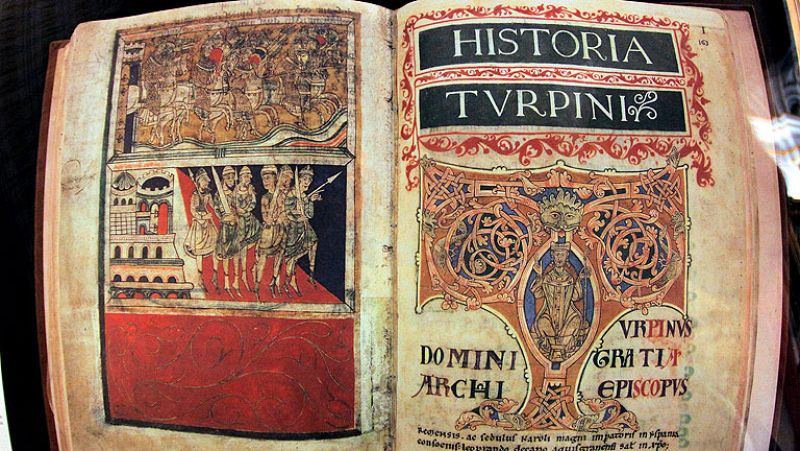 I
163
HISTORIA
TVRPINI
TVRPINVS
DOMINI GRATIA
ARCHI EPISCOPVS
ac sedulus Karoli magni imperatoris in yspania
consocius leoprando decano aquisgranensi